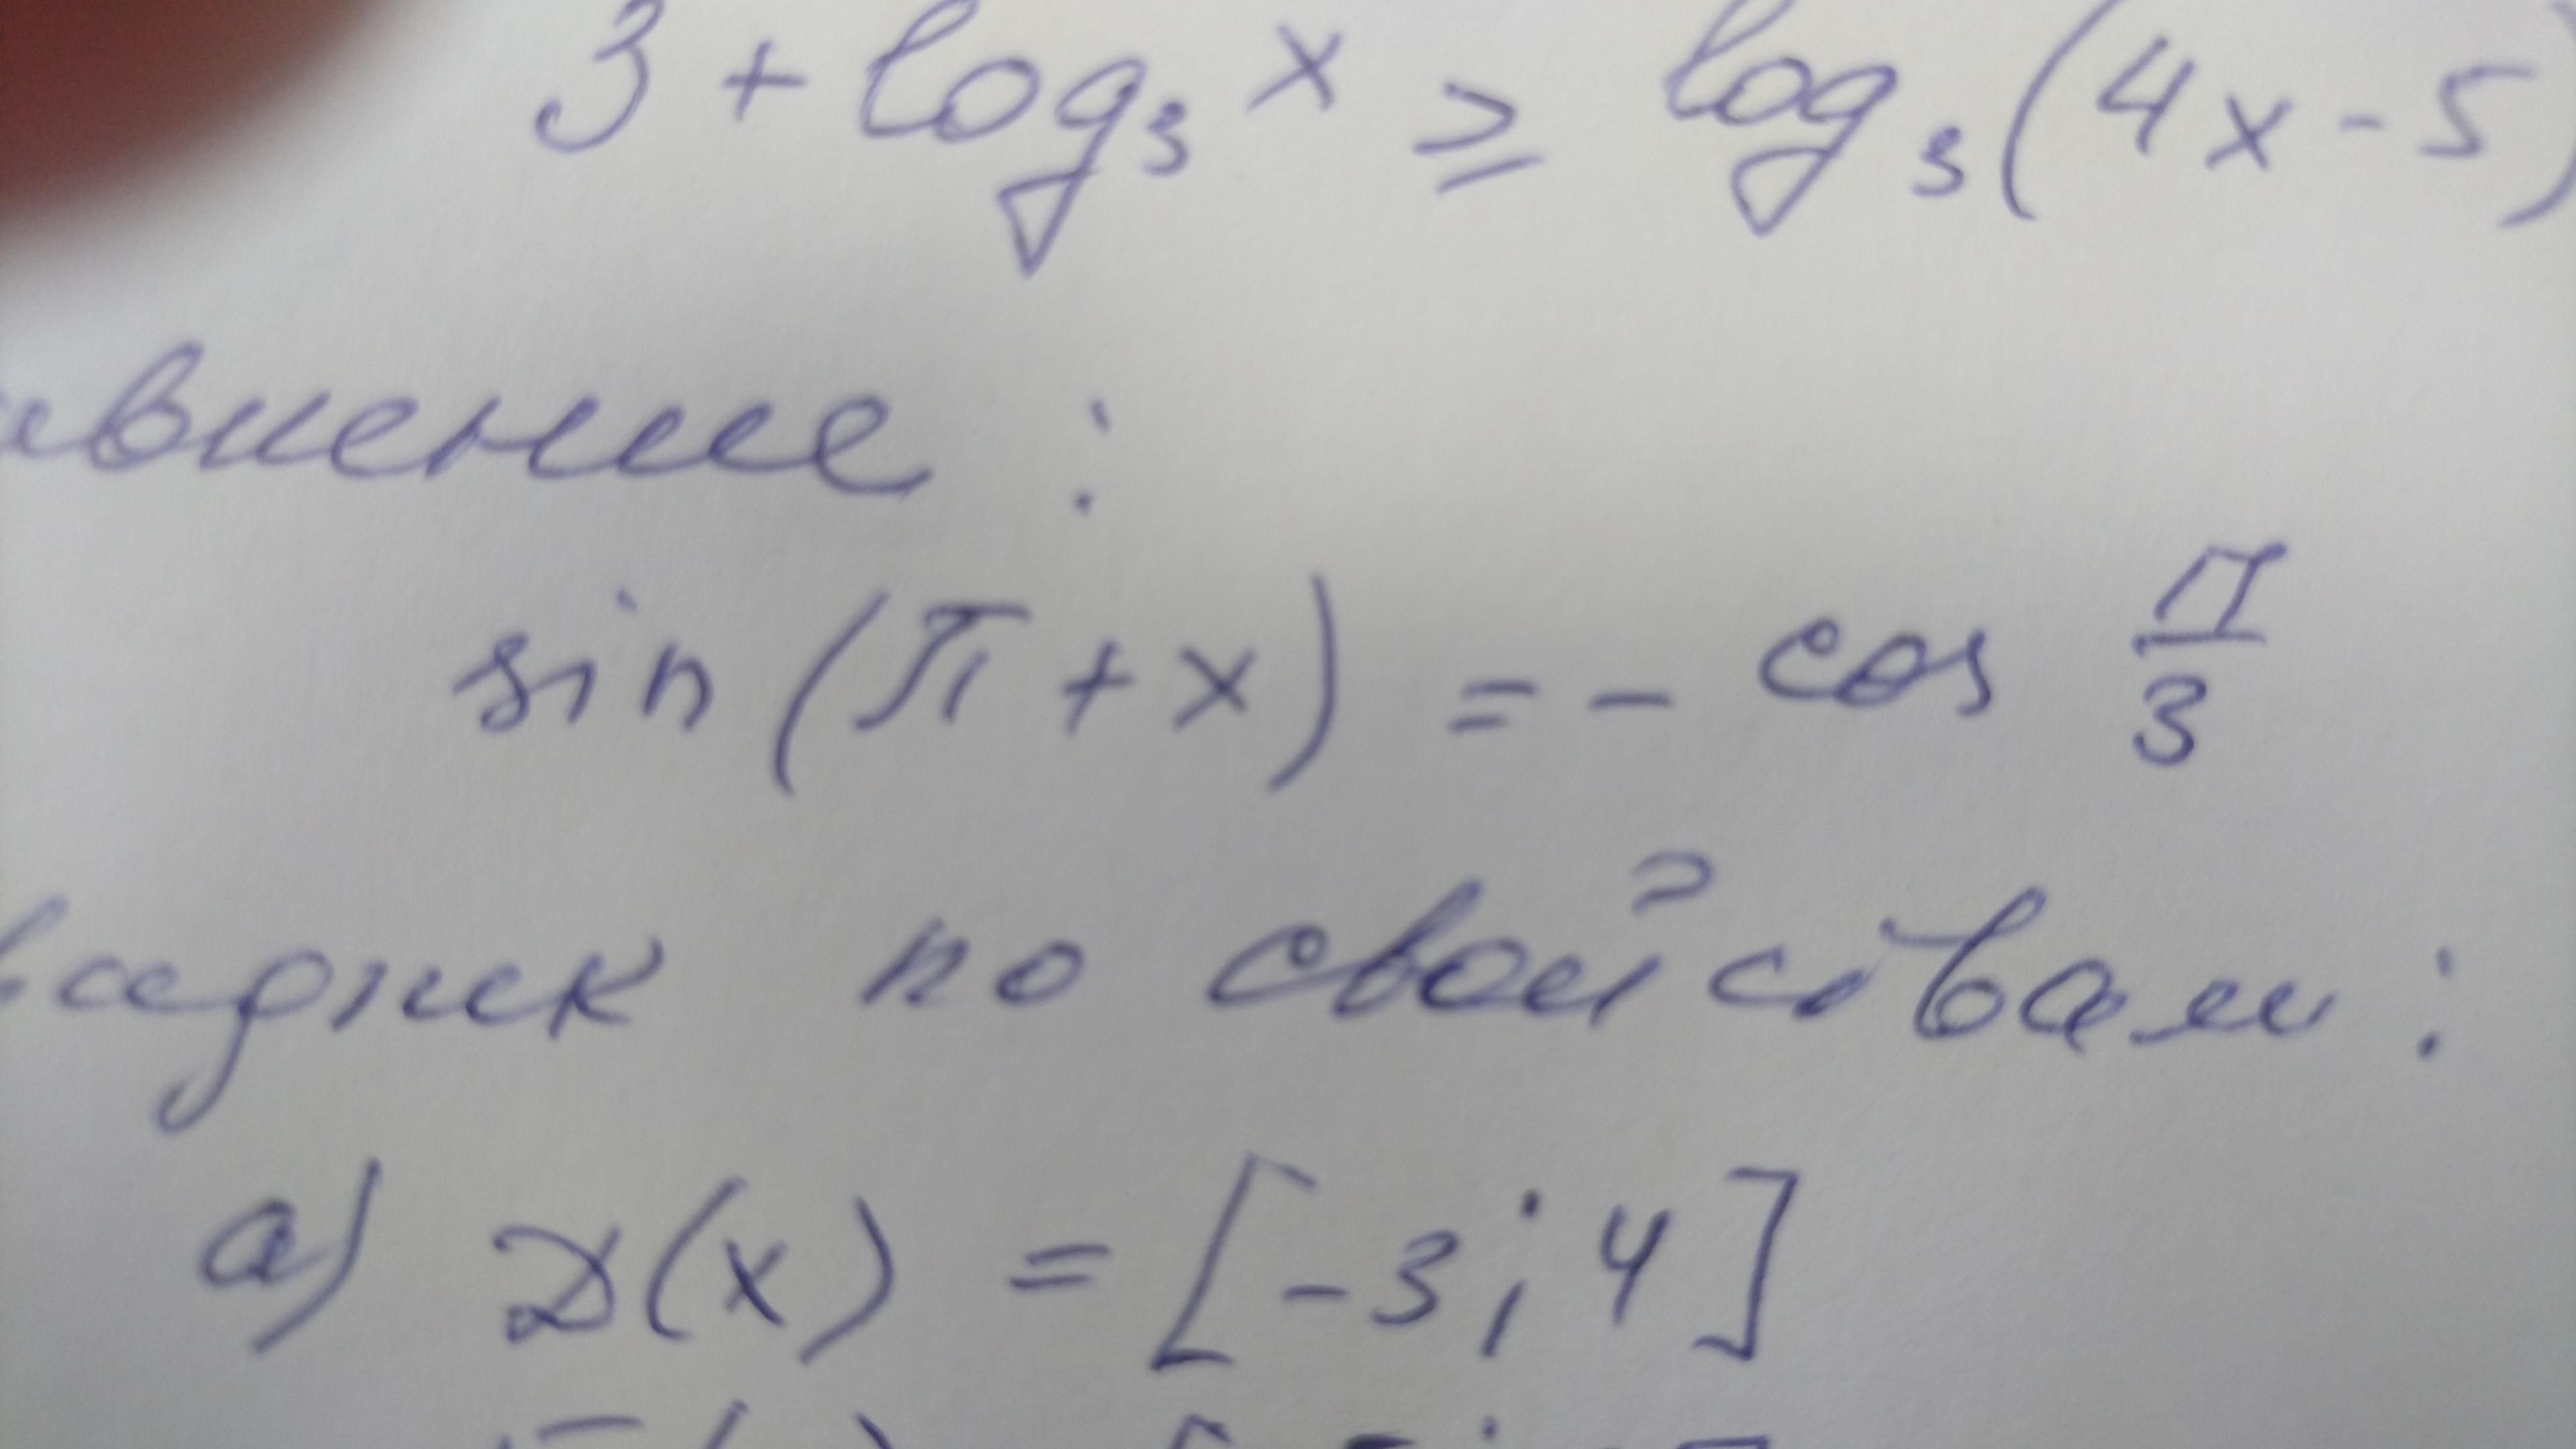 3 + log₃ x ≥ log₃(4x - 5)
авнение :
sin(π + x) = - cos π/3
рафик по свойствам :
а) D(x) = [-3; 4]